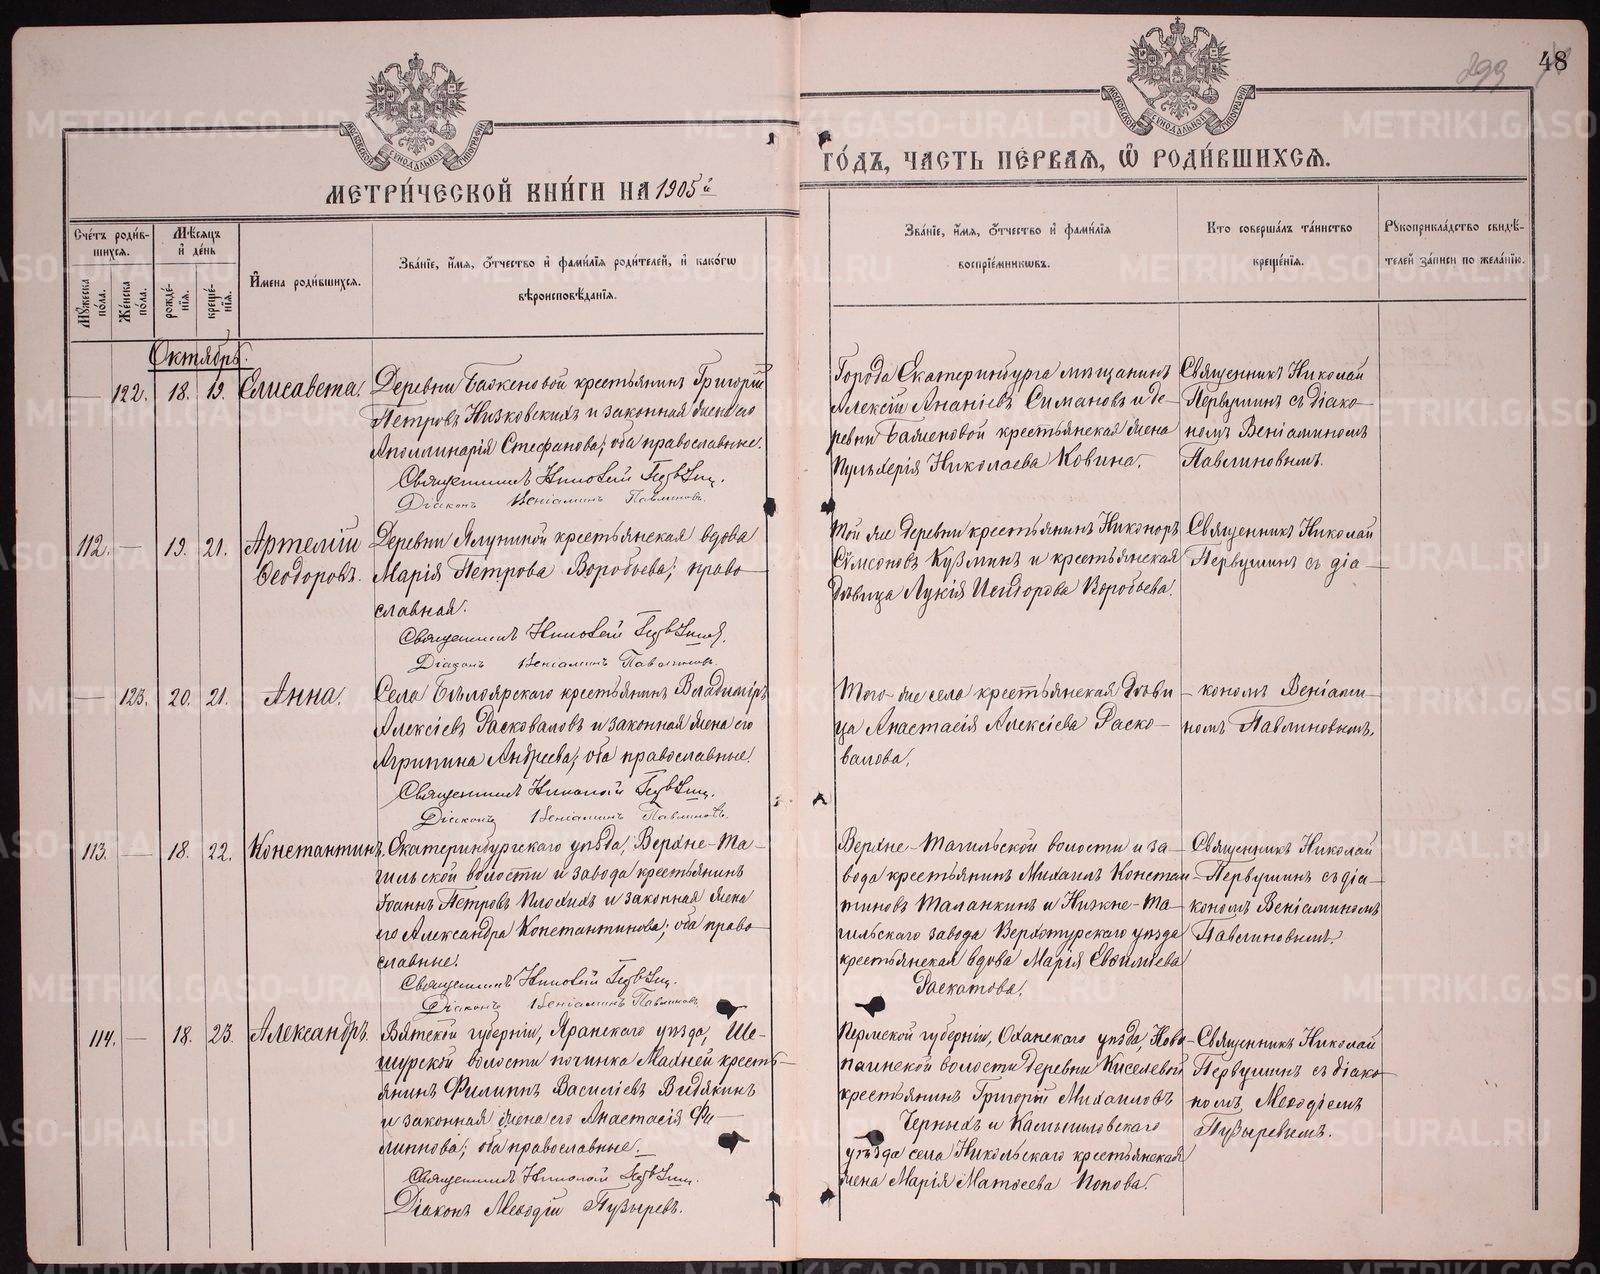 299 48
МЕТРИ́ЧЕСКОЙ КНИ́ГИ НА 1905й
ГО́ДЪ, ЧАСТЬ ПЕ́РВАЯ, Ѡ РОДИ́ВШИХСѦ.
МОСКОВСКОЙ СѴНОДАЛЬНОЙ ТИПОГРАФІИ
МОСКОВСКОЙ СѴНОДАЛЬНОЙ ТИПОГРАФІИ
Сче́тъ роди́в-
шихся.
Мѣ́сяцъ
и҆ де́нь
Мꙋ́жеска по́ла.
Же́нска по́ла.
рожде́-
нїя.
креще́-
нїя.
И҆мена роди́вшихся.
Зва́нїе, и҆́мя, ѻ҆́тчество и҆ фамилїя роди́телей, и҆ како́гѡ
вѣроисповѣ́данїя.
Зва́нїе, и҆́мя, ѻ҆́тчество и҆ фамилїя
воспрїе́мникѡвъ.
Кто соверша́лъ та́инство
креще́нїя.
Рꙋкоприкла́дство свидѣ́-
телей за́писи по жела́нїю.
Октябрь.
— 122. 18. 19. Елисавета.
Деревни Баженовой крестьянинъ Григорій
Петровъ Низковскихъ и законная жена его
Аполлинарія Стефанова; оба православные.
Священникъ Николай Первушинъ.
Діаконъ Веніаминъ Павлиновъ.
Города Екатеринбурга мѣщанинъ
Алексій Ананіевъ Симановъ и де-
ревни Баженовой крестьянская жена
Пульхерія Николаева Ковина.
Священникъ Николай
Первушинъ съ діако-
номъ Веніаминомъ
Павлиновымъ.
112. — 19. 21. Артемій
Ѳеодоровъ.
Деревни Ялуниной крестьянская вдова
Марія Петрова Воробьева; право-
славная.
Священникъ Николай Первушинъ.
Діаконъ Веніаминъ Павлиновъ.
Той же деревни крестьянинъ Никаноръ
Сѵмеоновъ Кузминъ и крестьянская
дѣвица Лукія Исидорова Воробьева.
Священникъ Николай
Первушинъ съ діа-
— 123. 20. 21. Анна.
Села Бѣлоярскаго крестьянинъ Владиміръ
Алексіевъ Расковаловъ и законная жена его
Агрипина Андреева; оба православные.
Священникъ Николай Первушинъ.
Діаконъ Веніаминъ Павлиновъ.
Того-же села крестьянская дѣви-
ца Анастасія Алексіева Раско-
валова.
кономъ Веніами-
номъ Павлиновымъ.
113. — 18. 22. Константинъ.
Екатеринбургскаго уѣзда, Верхне-Та-
гильской волости и завода крестьянинъ
Іоаннъ Петровъ Плохихъ и законная жена
его Александра Константинова; оба право-
славные.
Священникъ Николай Первушинъ.
Діаконъ Веніаминъ Павлиновъ.
Верхне-Тагильской волости и за-
вода крестьянинъ Михаилъ Констан-
тиновъ Таланкинъ и Нижне-Та-
гильскаго завода Верхотурскаго уѣзда
крестьянская вдова Марія Евфиміева
Раскатова.
Священникъ Николай
Первушинъ съ діа-
кономъ Веніаминомъ
Павлиновымъ.
114. — 18. 23. Александръ.
Вятской губерніи, Яранскаго уѣзда, Ше-
шурской волости починка Махней кресть-
янинъ Филиппъ Василіевъ Видякинъ
и законная жена его Анастасія Фи-
липпова; оба православные.
Священникъ Николай Первушинъ.
Діаконъ Меѳодій Пузыревъ.
Пермской губерніи, Оханскаго уѣзда, Ново-
паинской волости деревни Киселевой
крестьянинъ Григорій Михаиловъ
Черныхъ и Камышловскаго
уѣзда села Никольскаго крестьянская
жена Марія Матѳеева Попова.
Священникъ Николай
Первушинъ съ діако-
номъ Меѳодіемъ
Пузыревымъ.
METRIKI.GASO-URAL.RU